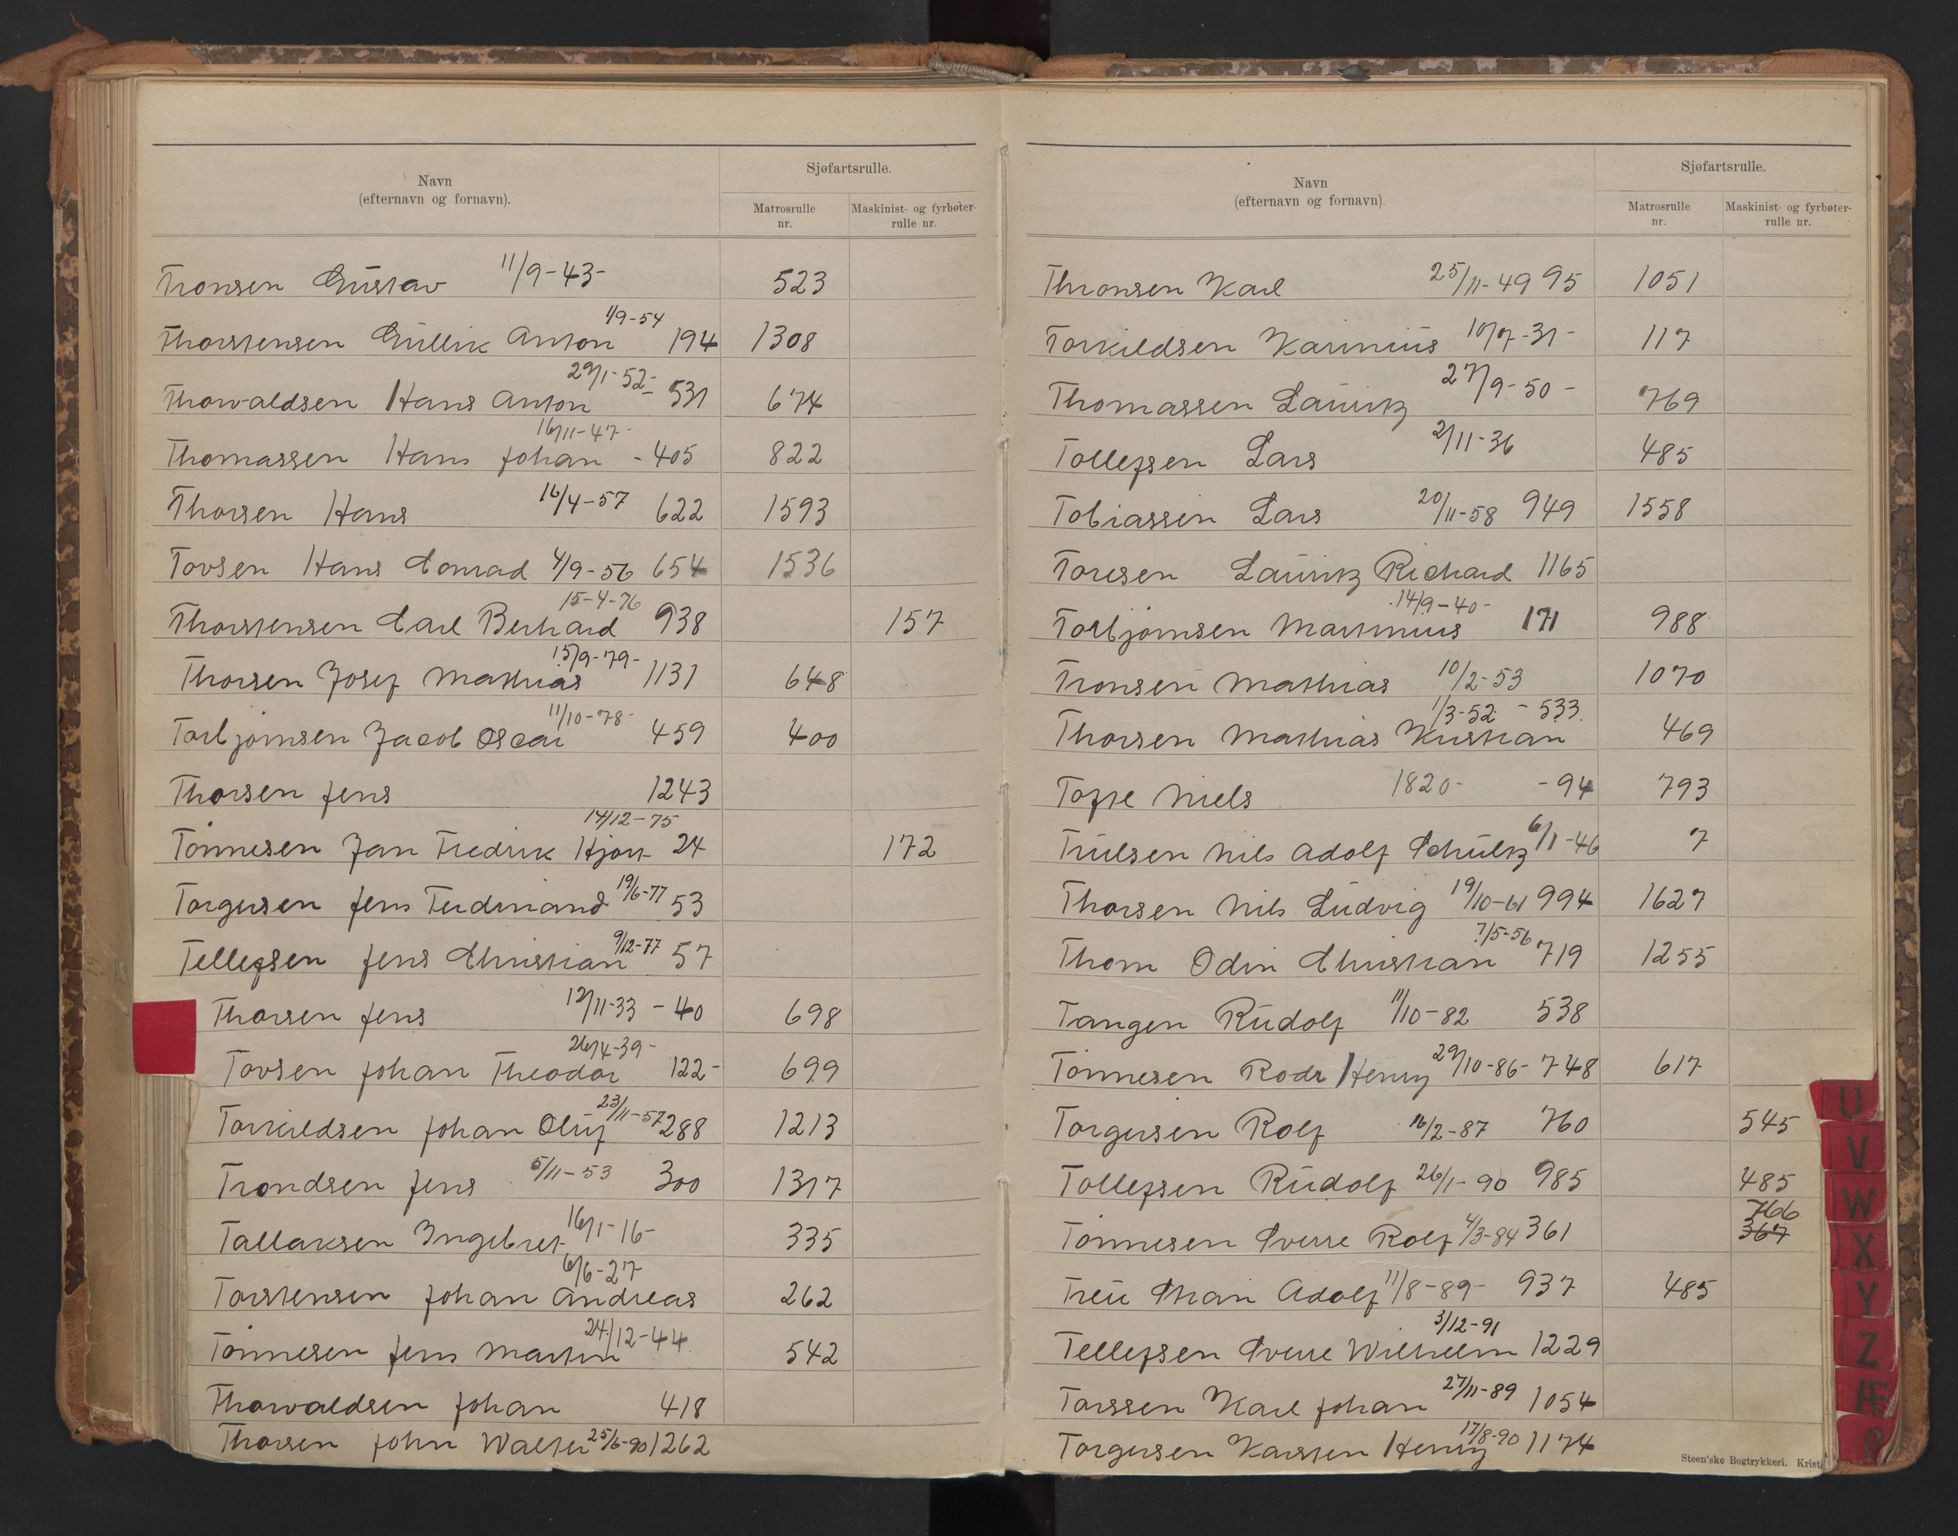 Navn
(efternavn og fornavn).
Sjøfartsrulle.
Matrosrulle nr.
Maskinist- og fyrbøter-rulle nr.
Tronsen Gustav 11/9-43- 523
Thorstensen Gullik Anton 1/9-54 194 1308
Thorvaldsen Hans Anton 29/1-52- 531 674
Thomassen Hans Johan 16/11-47- - 405 822
Thorsen Hans 16/4-57 622 1593
Tovsen Hans Conrad 4/9-56 654 1536
Thorstensen Carl Berhard 15-4-76 938 157
Thorsen Josef Mathias 15/9-79- 1131 648
Torbjørnsen Jacob Oscar 11/10-78- 459 400
Thorsen Jens 1243
Tønnesen Jan Fredrik Hjort 14/12-75 24 172
Torgersen Jens Ferdinand 19/6-77 53
Tellefsen Jens Christian 9/12-77 57
Thorsen Jens 12/11-33 - 40 698
Tovsen Johan Theodor 26/4-39- 122- 699
Torkildsen Johan Oluf 23/11-57 288 1213
Trondsen Jens 5/11-53 300 1317
Tallaksen Ingebret 16/1-16- 335
Torstensen Johan Andreas 6/6-27 262
Tønnesen Jens Martin 24/12-44 542
Thorvaldsen Johan 418
Thorsen John Walter 25/6-90 1262
Navn
(efternavn og fornavn).
Sjøfartsrulle.
Matrosrulle nr.
Maskinist- og fyrbøter-rulle nr.
Thronsen Karl 25/11-49 95 1051
Torkildsen Karinius 10/7-31- 117
Thomassen Lauritz 27/9-50- 769
Tollefsen Lars 2/11-36 485
Tobiassen Lars 20/11-58 949 1558
Toresen Lauritz Richard 1165
Torbjørnsen Martinius 14/9-40- 171 988
Tronsen Mathias 10/2-53 1070
Thorsen Mathias Kristian 1/3-52 - 533 469
Tofte Niels 1820- - 94 793
Trulsen Nils Adolf Schultz 6/1-46 7
Thorsen Nils Ludvig 19/10-61 994 1627
Thom Odin Christian 7/5-56 719 1255
Tangen Rudolf 11/10-82 538
Tønnesen Rodr Henry 29/10-86- 748 617
Torgersen Rolf 16/2-87 760 545
Tollefsen Rudolf 26/1-90 985 485
Tønnesen Sverre Rolf 4/3-84 361 766 367
Treu Thain Adolf 11/8-89- 937 485
Tellefsen Sverre Wilhelm 3/12-91 1229
Torssen Karl Johan 27/11-89 1054
Torgersen Karsten Henry 17/8-90 1174
Steen'ske Bogtrykkeri. Kristi
U
V
W
X
Y
Z
Æ
Ø